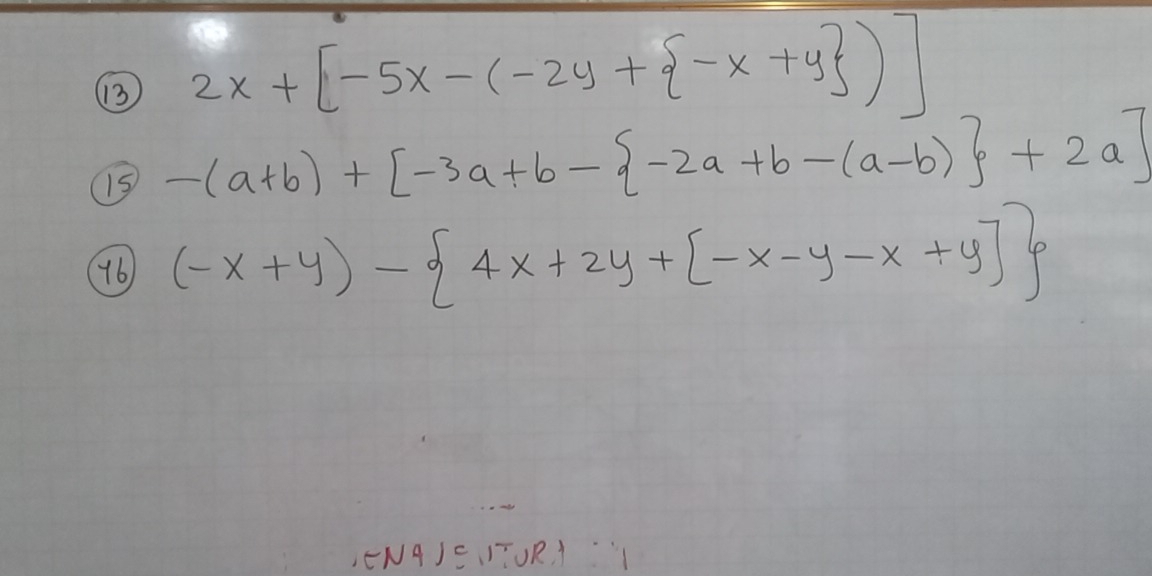 ⑬ 2x + [-5x - (-2y + {-x + y})]
⑮ -(a+b) + [-3a + b - {-2a + b - (a-b)} + 2a]
⑯ (-x + y) - { 4x + 2y + [-x - y - x + y] }